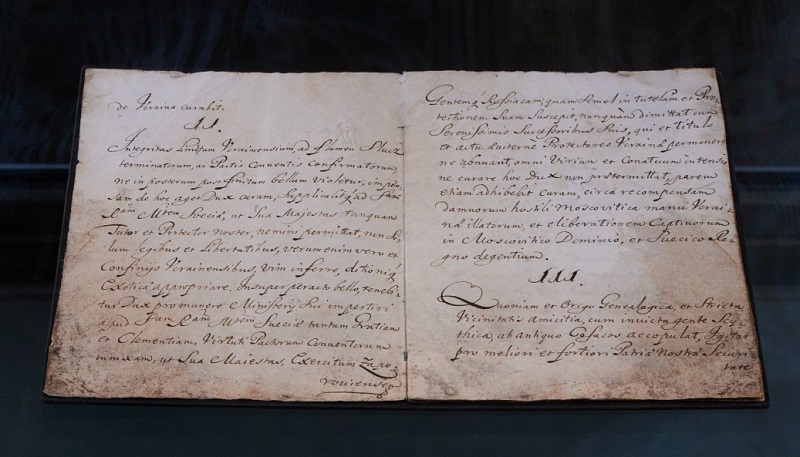 de Vcraina curabit.
II.
Integritas limitum Vcrainensium, ad flumen Slucz
terminatorum, ac Pactis Conventis Confirmatorum
ne in posterum post finitum bellum violetur, impen„
sam de hoc aget Dux curam, Supplicabitq; ad
Mtem Sveciæ, ut Sua Majestas tanquam
Tutor et Protector noster, nemini permittat, non So„
lum legibus et Libertatibus, verum enim vero et
Confinijs Vcrainensibus, vim inferre, ditioniq;
Exoticæ appropriare. Insuper peracto bello, tenebi„
tur Dux pro munere Ministerij Sui impertiri
apud Mtem Sueciæ tantam Gratiam
et Clementiam, Virtuti Pactorum Conventorum
innixam, ut Sua Maiestas, Exercitum Zapo„
roviensem
Gentemq; Rossiacam, quam Semel in tutelam et Pro„
tectionem Suam Suscepat, nunquam dimittat cum
Serenissimis Successoribus Suis, qui et titulo
et actu æuiterne Protectores Vcrainæ permanere
ne omni Virium et Conatuum intensio„
ne curare hoc Dux non prætermittat, parem
etiam adhibebit curam, circa recompensam
damnorum hostili Moscovitica manu Vcrai„
næ illatorum, et eliberationem Captivorum
in Moscovitico Dominio, et Suecico Re„
gno degentium.
III.
Quoniam et Origo Genealogica, et Stricta
Vicinitatis amicitia, cum invicta gente Scy„
thica, ab antiquo Cosacos accopulat, Igitur
pro meliori et fortiori Patriæ Nostræ Securi„
tate